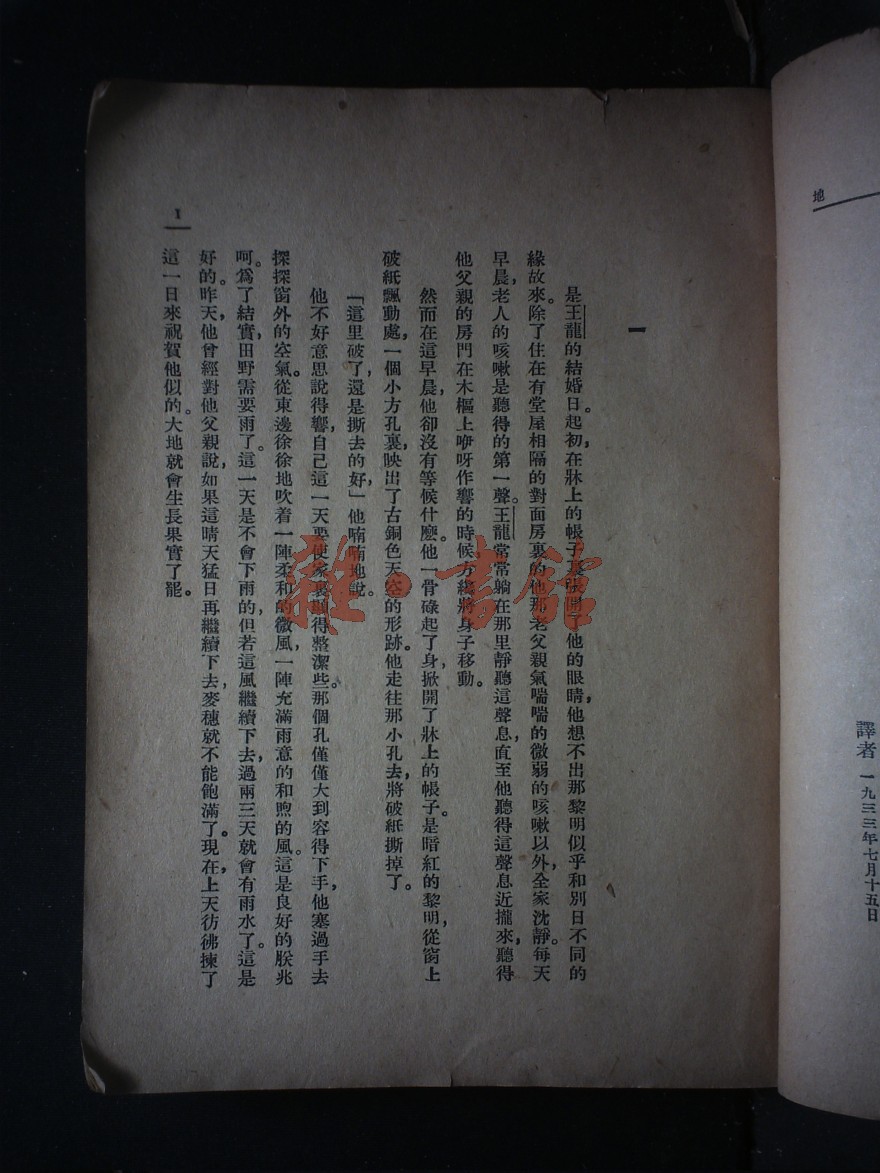 地
譯者 一九三三年七月十五日
一
是王龍的結婚日。起初,在牀上的帳子裏張開了他的眼睛,他想不出那黎明似乎和別日不同的
緣故來。除了住在有堂屋相隔的對面房裏的他那老父親氣喘喘的微弱的咳嗽以外,全家沈靜。每天
早晨,老人的咳嗽是聽得的第一聲。王龍常常躺在那里靜聽這聲息,直至他聽得這聲息近攏來,聽得
他父親的房門在木樞上咿呀作響的時候,方纔將身子移動。
然而在這早晨,他卻沒有等候什麼。他一骨碌起了身,掀開了牀上的帳子。是暗紅的黎明,從窗上
破紙飄動處,一個小方孔裏,映出了古銅色天空的形跡。他走往那小孔去,將破紙撕掉了。
「這里破了,還是撕去的好,」他喃喃地說。
他不好意思說得響,自己這一天要使家裏顯得整潔些。那個孔僅僅大到容得下手,他塞過手去
探探窗外的空氣。從東邊徐徐地吹着一陣柔和的微風,一陣充滿雨意的和煦的風。這是良好的朕兆
呵。爲了結實,田野需要雨了。這一天是不會下雨的,但若這風繼續下去,過兩三天就會有雨水了。這是
好的。昨天,他曾經對他父親說,如果這晴天猛日再繼續下去,麥穗就不能飽滿了。現在,上天彷彿揀了
這一日來祝賀他似的。大地就會生長果實了罷。
1
雜·書館